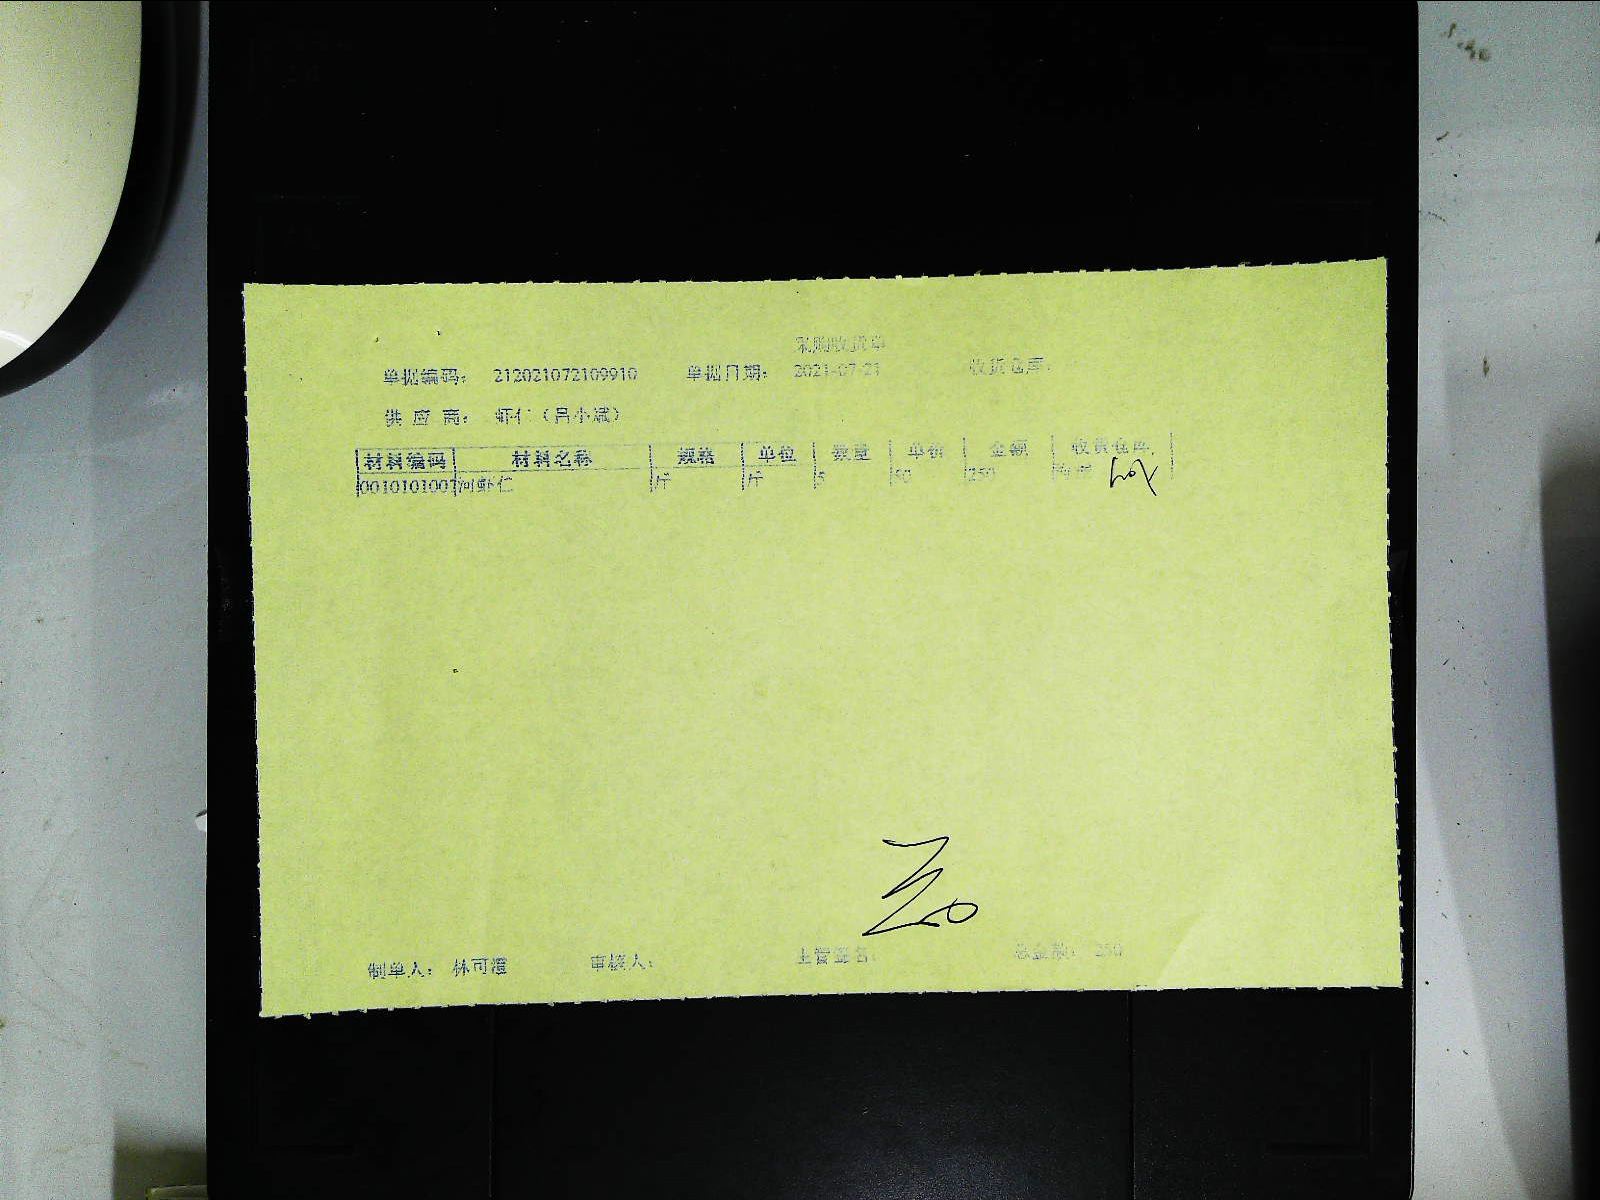 采购收货单
单据编码： 212021072109910 单据日期： 2021-07-21 收货仓库：
供 应 商： 虾仁（吕小斌）
材料编码 材料名称 规格 单位 数量 单价 金额 收货仓库
0010101007 河虾仁 斤 斤 5 50 250
制单人： 林可濃 审核人： 主管签名： 总金额： 250